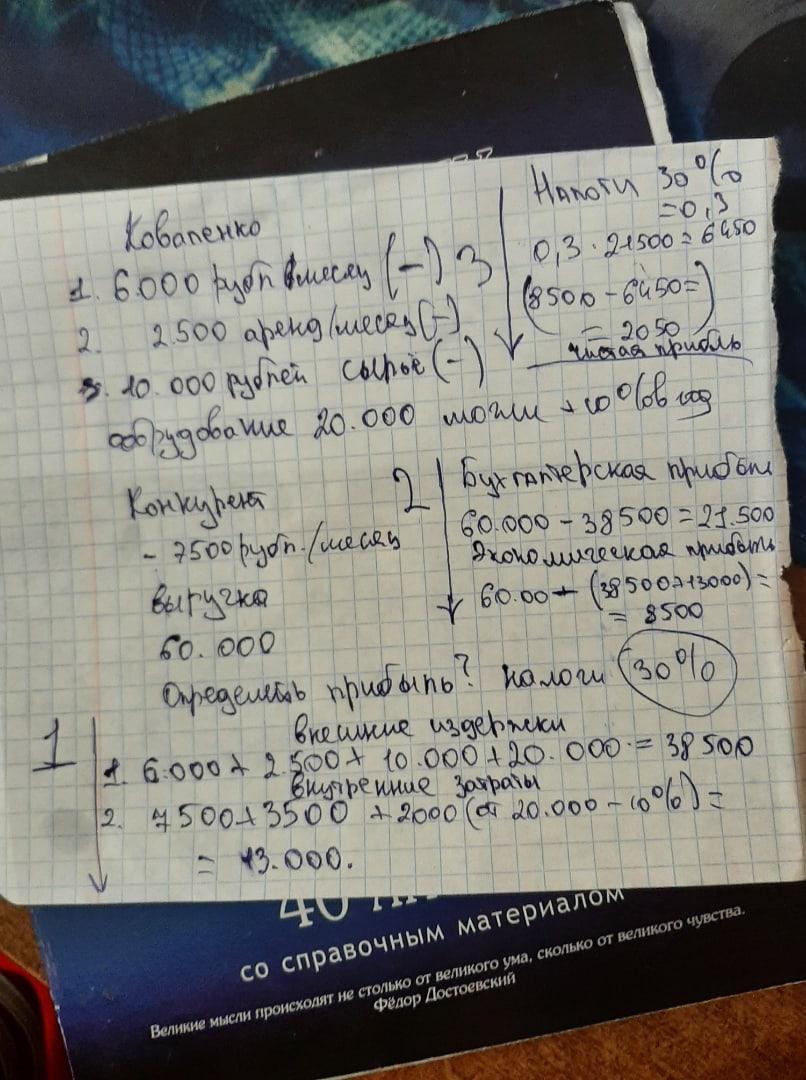 Коваленко
1. 6.000 рубл в месяц (-) 3
2. 2.500 аренд/месяц (-)
3. 10.000 рублей сырьё (-)
оборудование 20.000 могли + 10% в год
Налоги 30%
=0,3
0,3 · 21500 = 6450
(8500 - 6450 =
= 2050)
чистая прибль
Конкурент
- 7500 рубл./месяц
выручка
60.000
Определеть прибыль? налоги 30%
2
Бухгалтерская прибыль
60.000 - 38500 = 21.500
Экономическая прибыль
60.00 - (38500+13000) =
= 8500
1
внешние издержки
1. 6.000 + 2.500 + 10.000 + 20.000 = 38500
внутренние затраты
2. 7500 + 3500 + 2000 (от 20.000 - 10%) =
= 13.000.
40
со справочным материалом
Великие мысли происходят не столько от великого ума, сколько от великого чувства.
Фёдор Достоевский